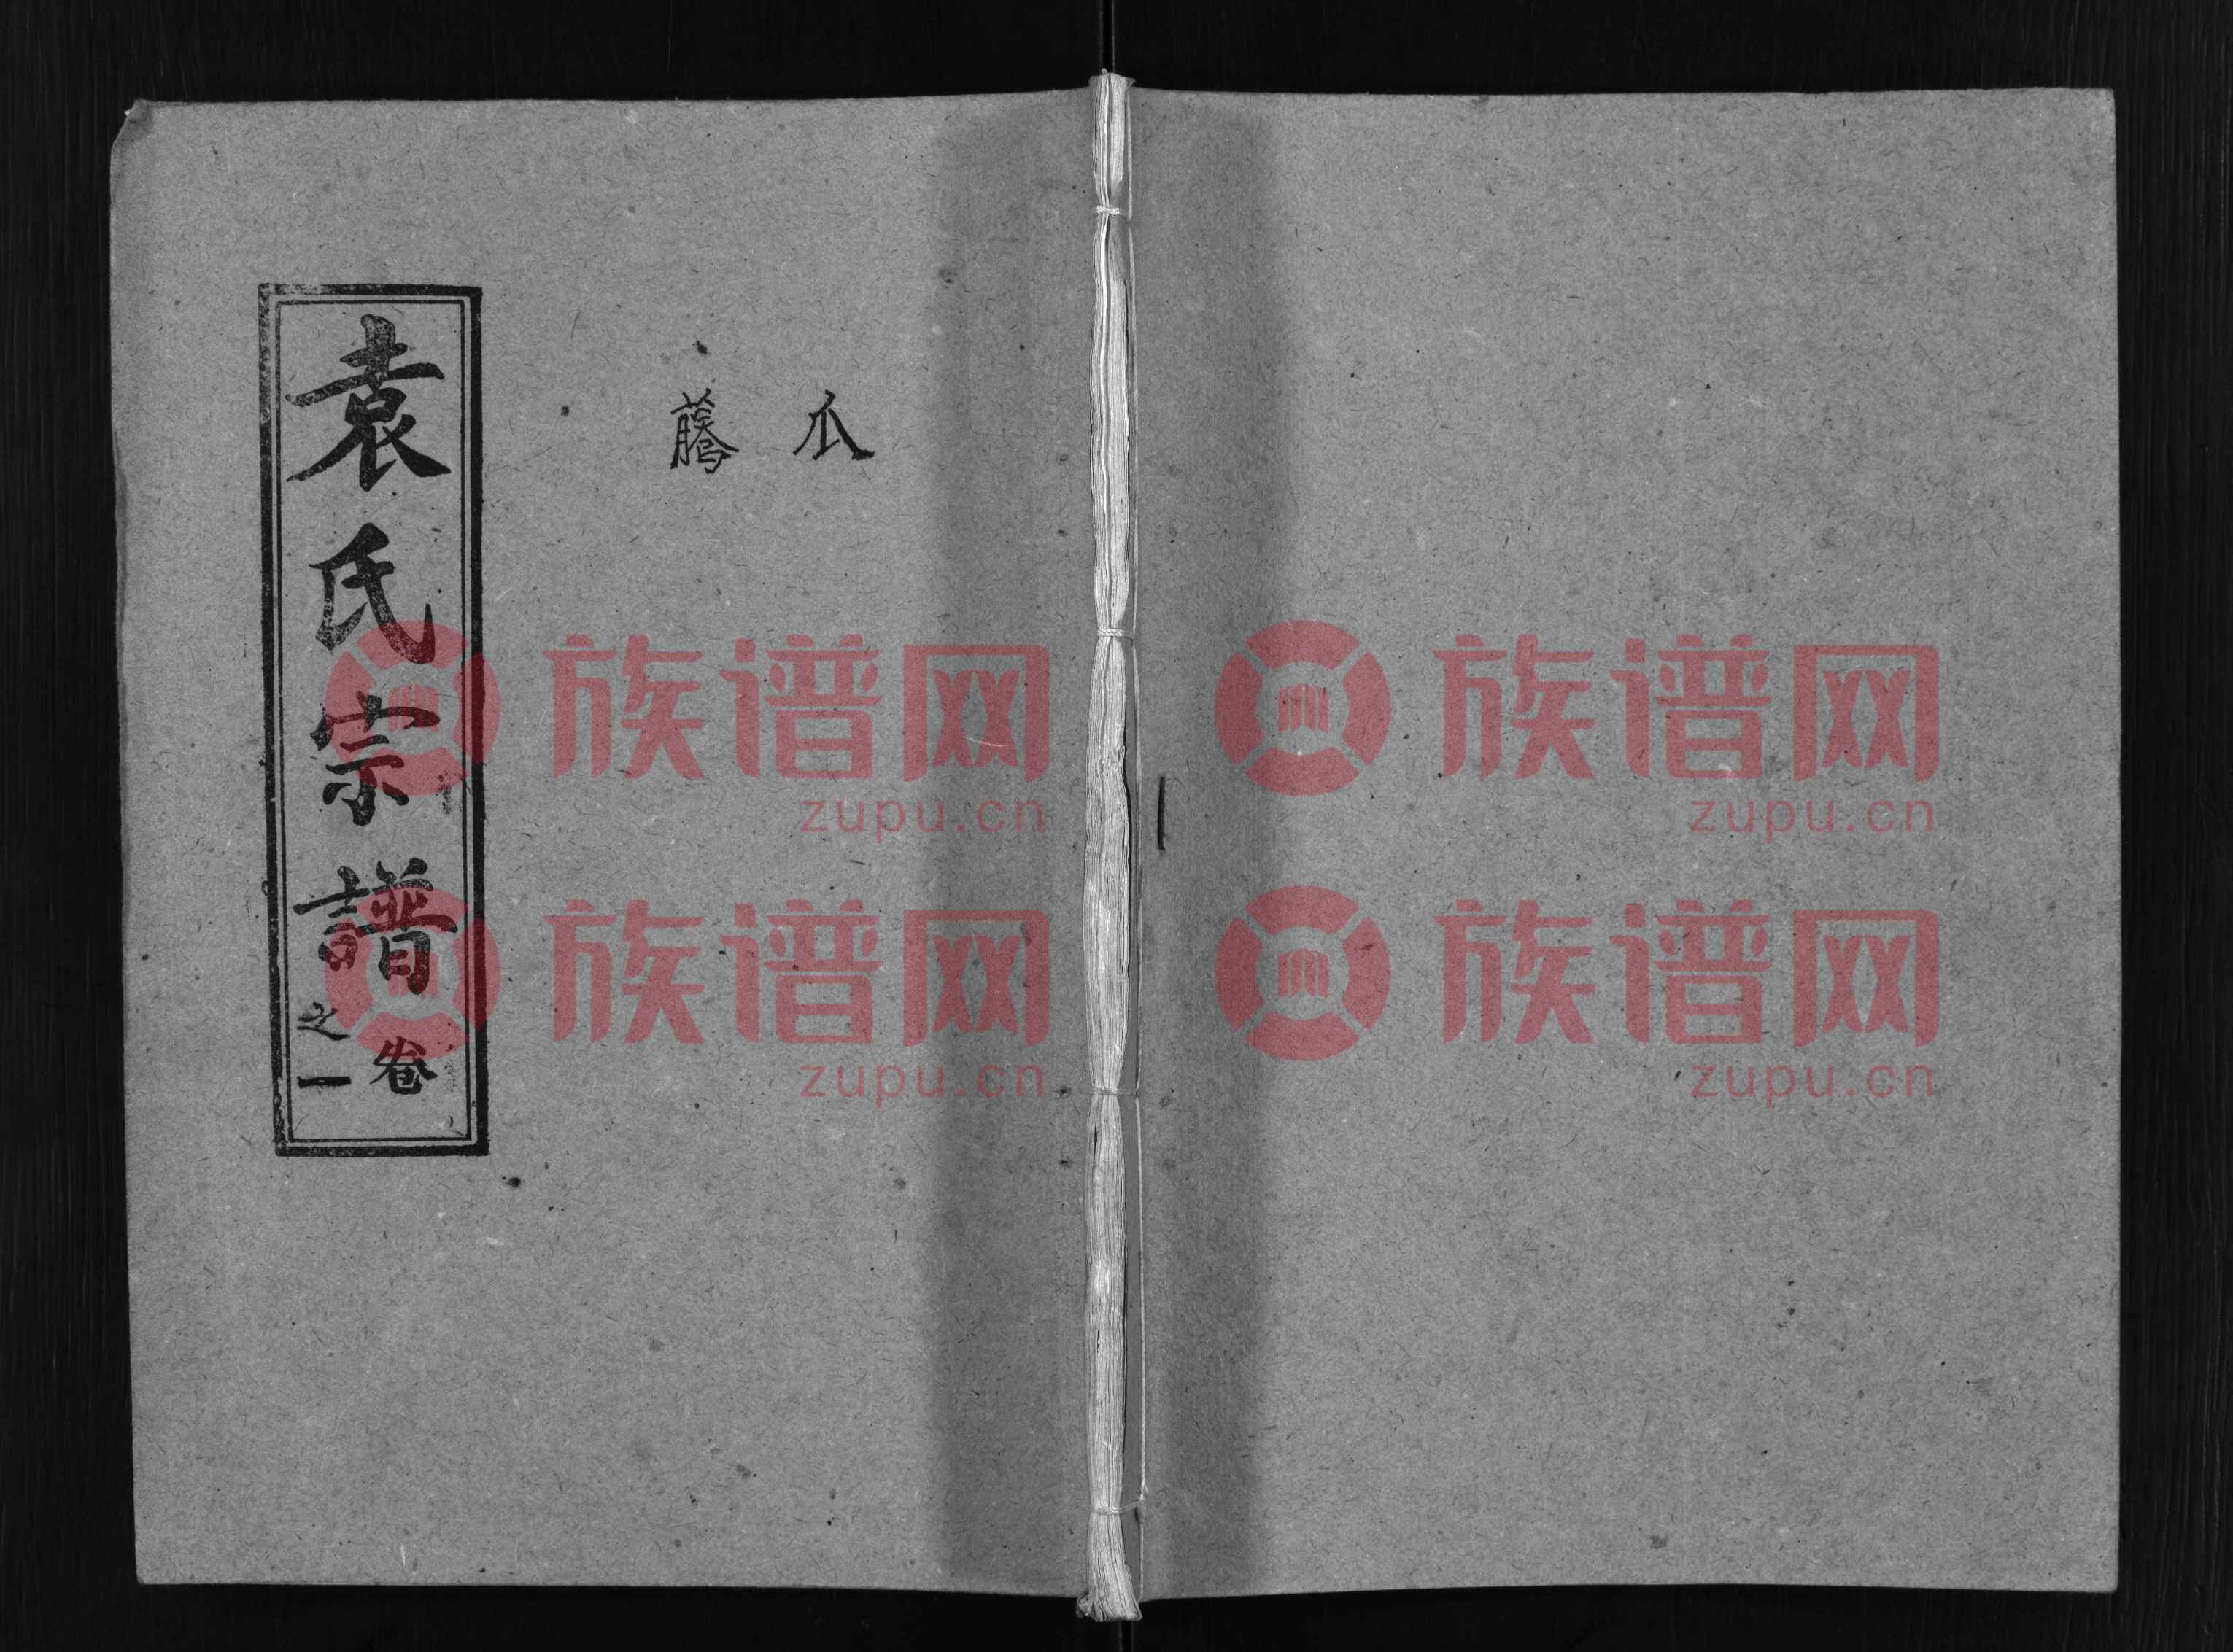 瓜
袁氏宗譜
卷
之一
族谱网
zupu.cn
族谱网
zupu.cn
族谱网
zupu.cn
族谱网
zupu.cn